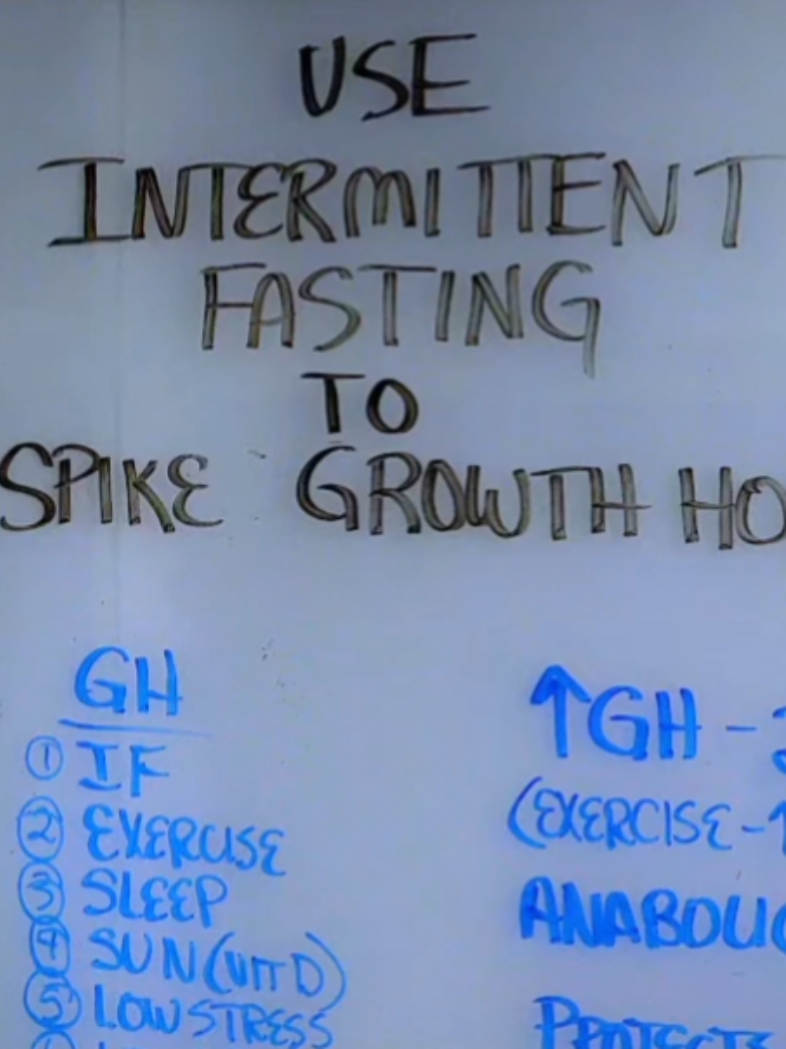 USE
INTERMITTENT
FASTING
TO
SPIKE GROWTH HO
GH
① IF
② EXERCISE
③ SLEEP
④ SUN (VIT D)
⑤ LOW STRESS
↑GH -
(EXERCISE -
ANABOLIC
PROTECTS